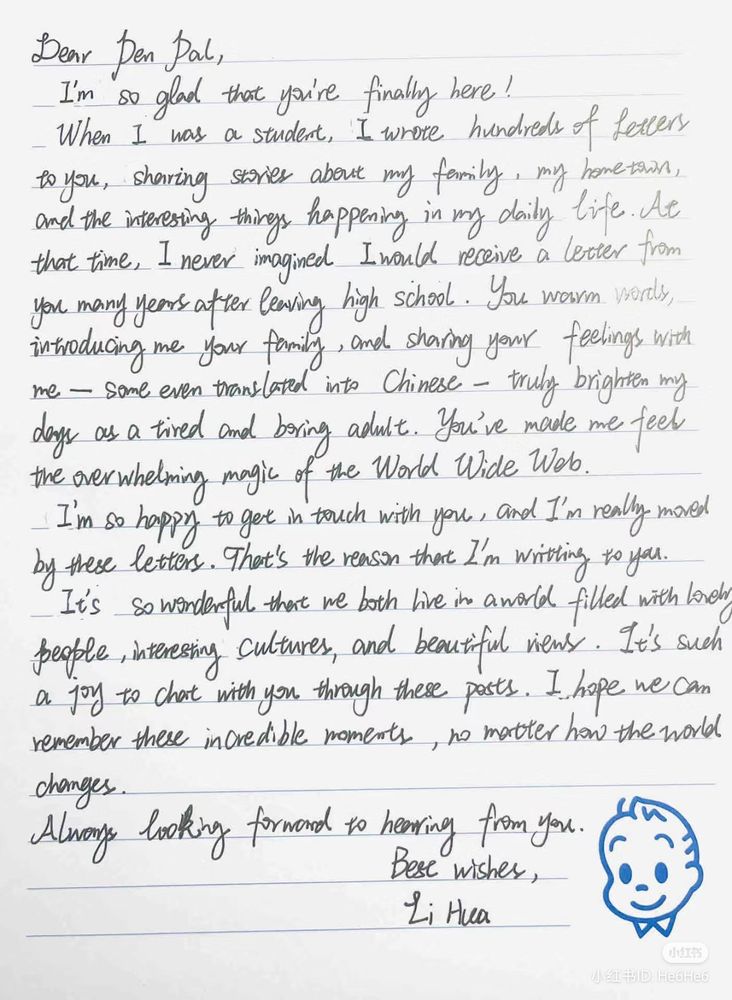 Dear Pen Pal,
I'm so glad that you're finally here!
When I was a student, I wrote hundreds of letters
to you, sharing stories about my family, my hometown,
and the interesting things happening in my daily life. At
that time, I never imagined I would receive a letter from
you many years after leaving high school. You warm words,
introducing me your family, and sharing your feelings with
me — some even translated into Chinese — truly brighten my
days as a tired and boring adult. You've made me feel
the overwhelming magic of the World Wide Web.
I'm so happy to get in touch with you, and I'm really moved
by these letters. That's the reason that I'm writting to you.
It's so wonderful that we both live in a world filled with lovely
people, interesting cultures, and beautiful views. It's such
a joy to chat with you through these posts. I hope we can
remember these incredible moments, no matter how the world
changes.
Always looking forward to hearing from you.
Best wishes,
Li Hua
小红书
小红书ID He6He6